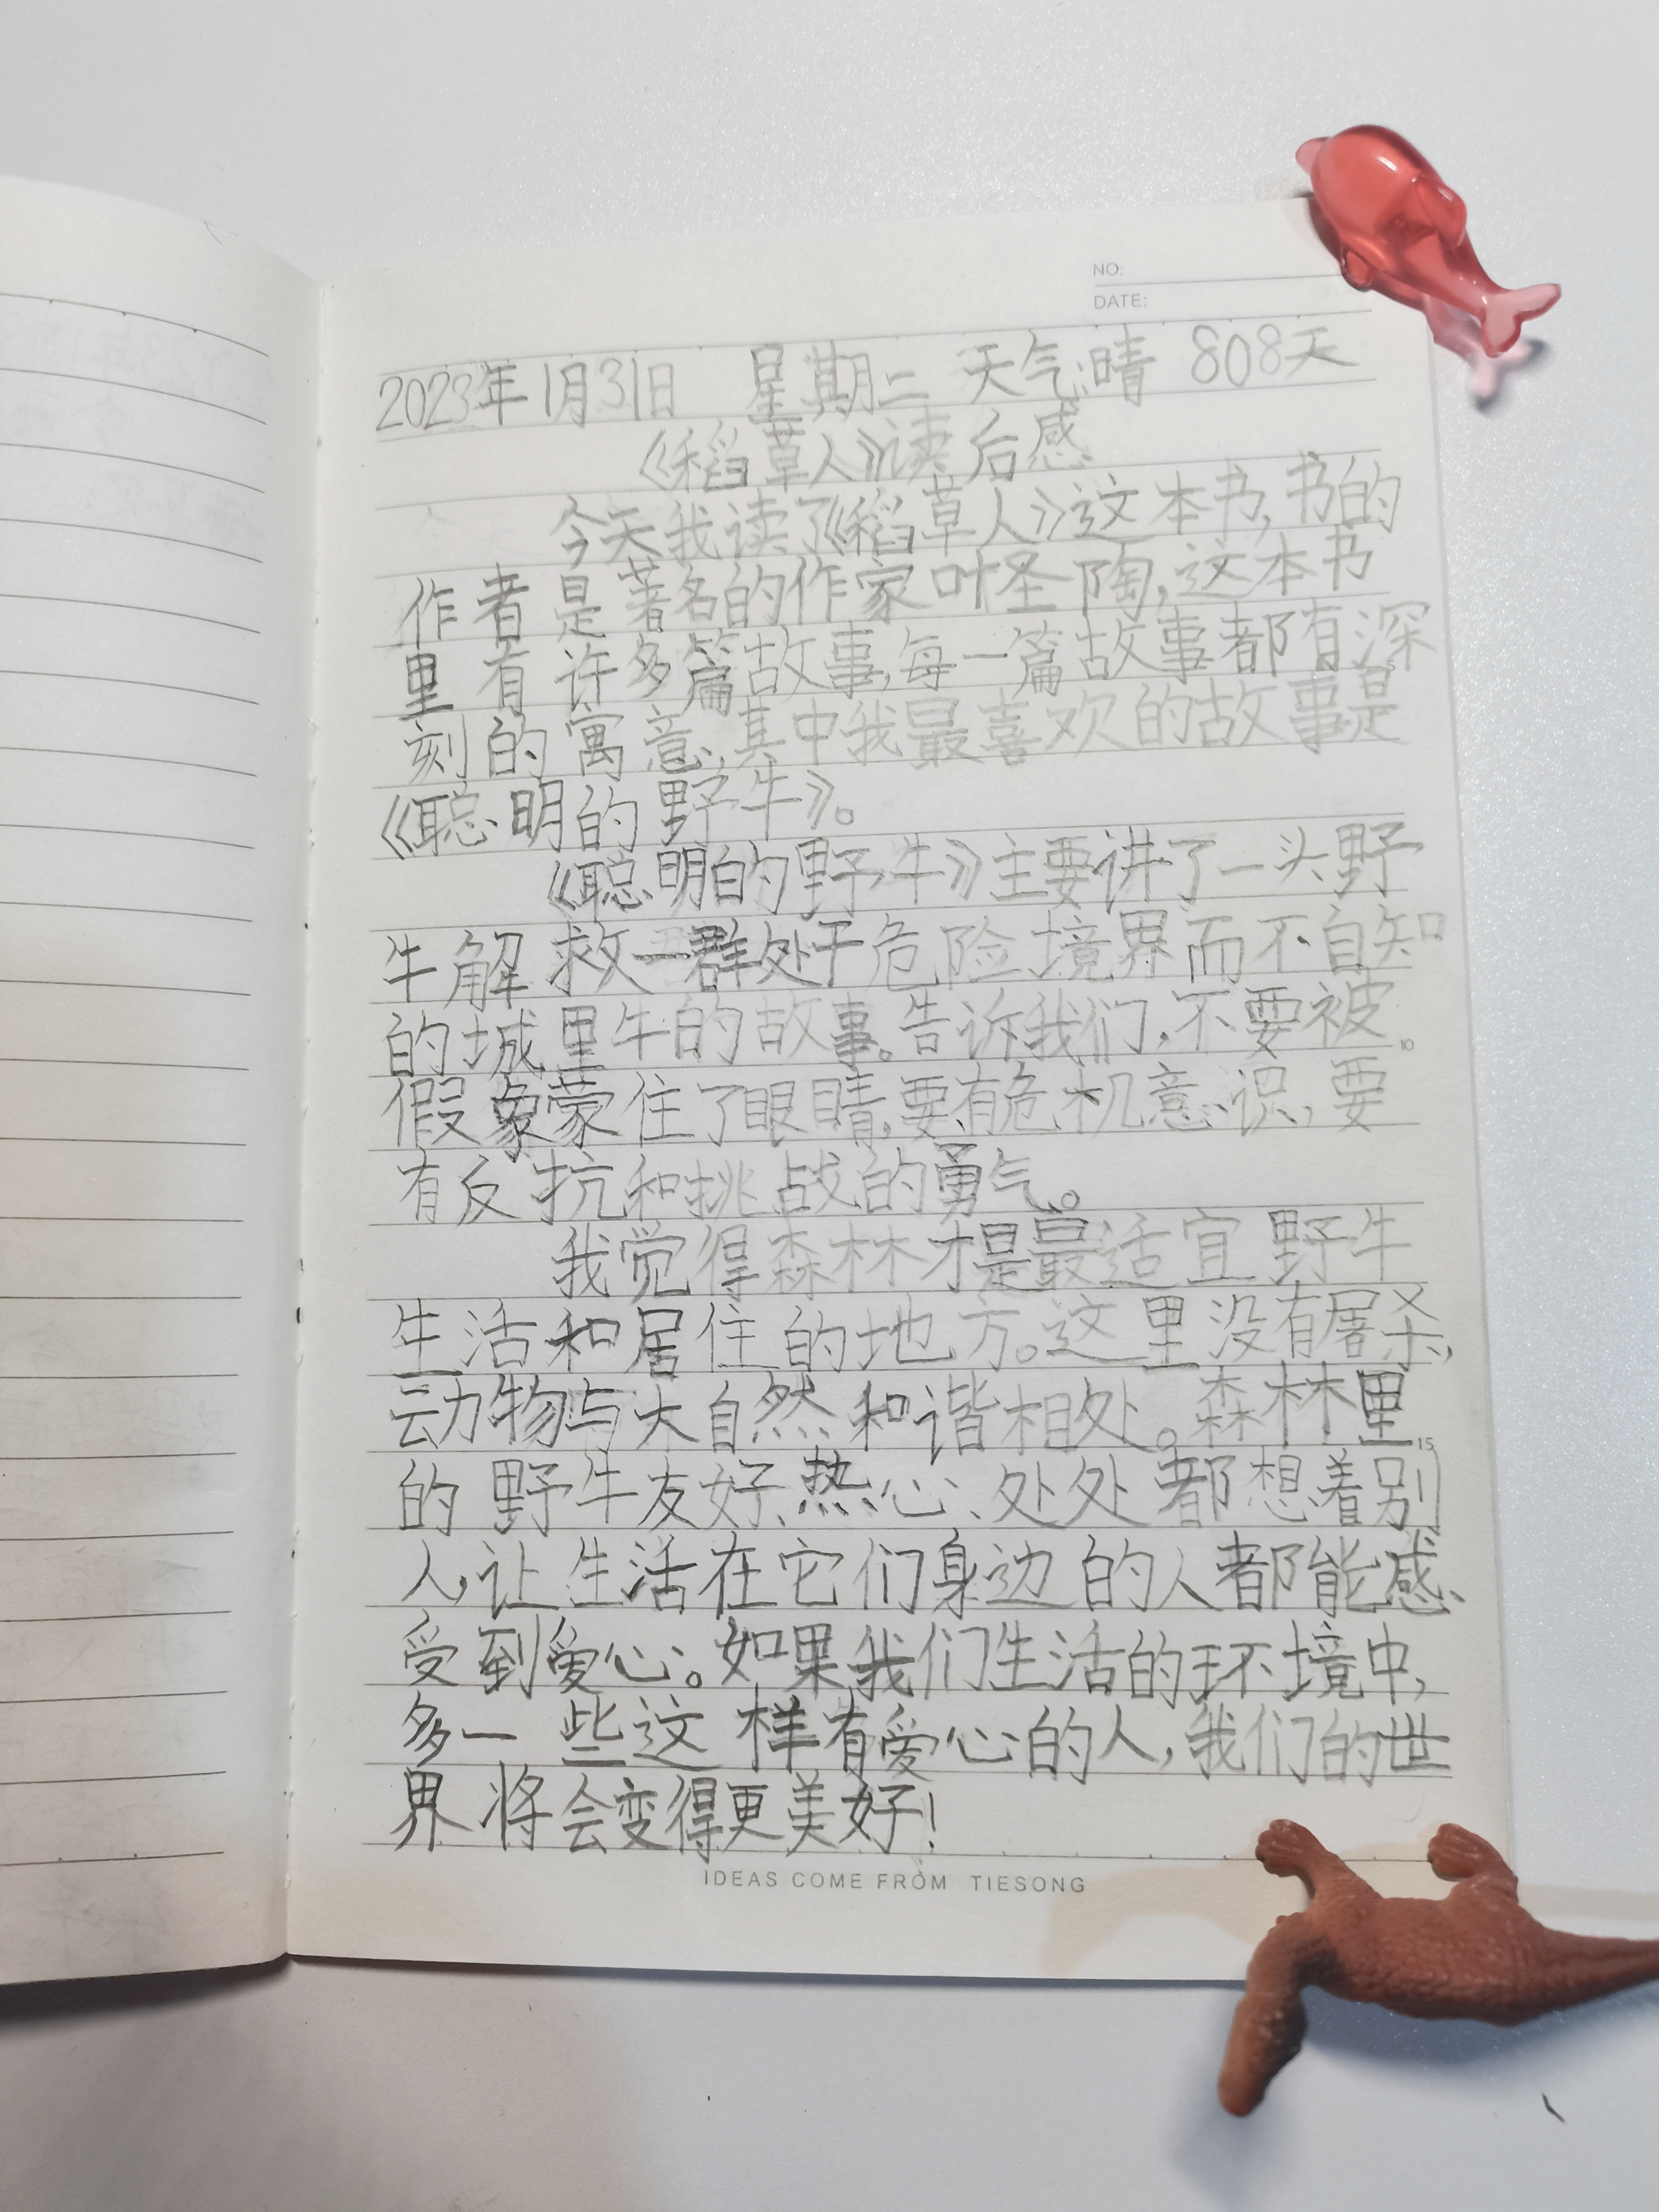 NO:
DATE:
2023年1月31日 星期二 天气:晴 808天
《稻草人》读后感
今天我读了《稻草人》这本书,书的
作者是著名的作家叶圣陶,这本书
里有许多篇故事,每一篇故事都有深
刻的寓意,其中我最喜欢的故事是
《聪明的野牛》。
《聪明的野牛》主要讲了一头野
牛解救一群处于危险境界而不自知
的城里牛的故事。告诉我们,不要被
假象蒙住了眼睛,要有危机意识,要
有反抗和挑战的勇气。
我觉得森林才是最适宜野牛
生活和居住的地方。这里没有屠杀,
动物与大自然和谐相处。森林里
的野牛友好、热心、处处都想着别
人,让生活在它们身边的人都能感
受到爱心。如果我们生活的环境中,
多一些这样有爱心的人,我们的世
界将会变得更美好!
10
15
IDEAS COME FROM TIESONG